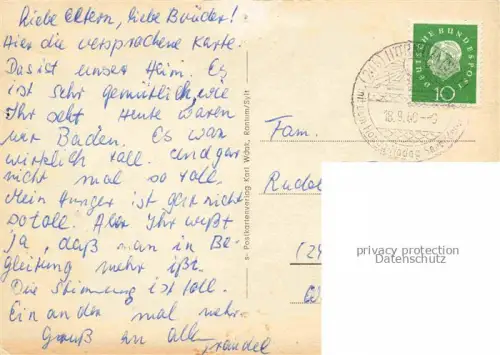 Liebe Eltern, liebe Brüder!
Hier die versprochene Karte.
Das ist unser Heim. Es
ist sehr gemütlich, wie
Ihr seht. Heute waren
wir Baden. Es war
wirklich toll. und gar
nicht mal so voll.
Mein Hunger ist gar nicht
so toll. Aber Ihr wißt
ja, daß man in Be-
gleitung mehr ißt.
Die Stimmung ist toll.
Ein an der mal mehr.
Gruß an alle
Postkartenverlag Karl Wäsk, Rantum/Sylt
DEUTSCHE BUNDESPOST
10
18.9.60
Fam.
(24
privacy protection
Datenschutz